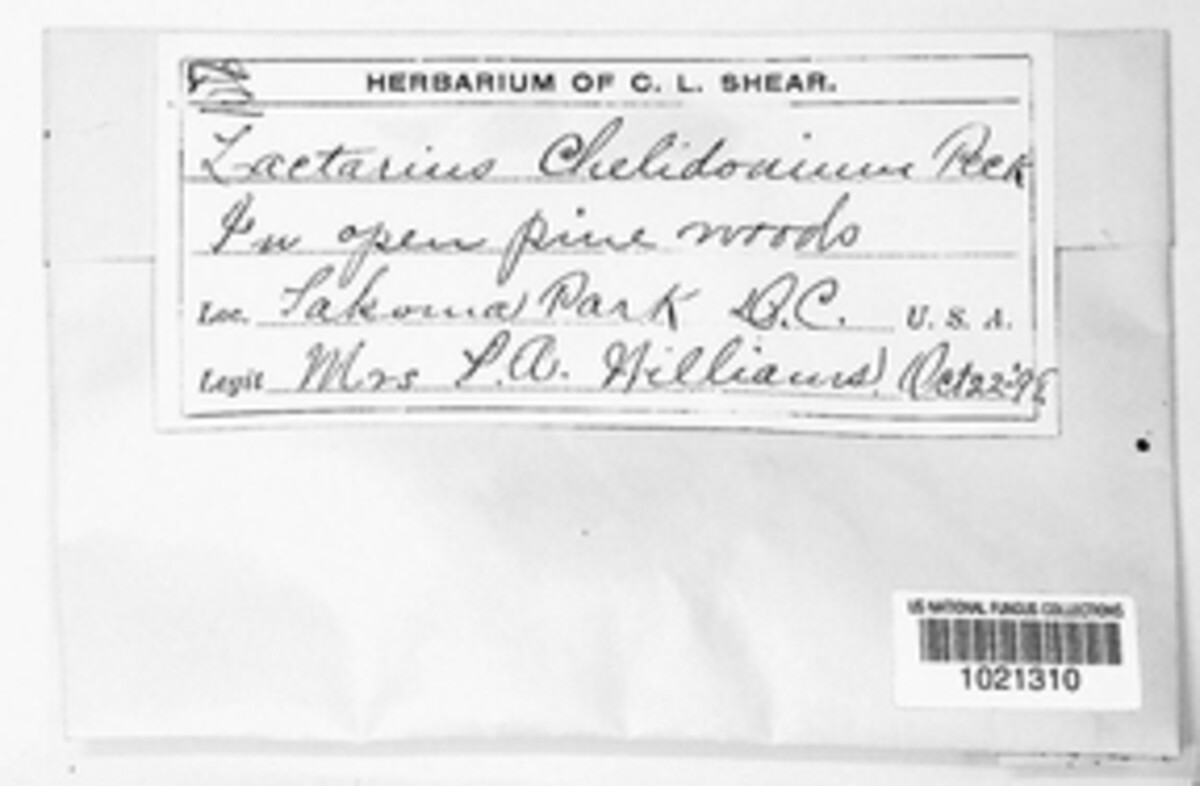 HERBARIUM OF C. L. SHEAR.
Lactarius Chelidonium Peck
In open pine woods
Loc. Takoma Park D.C. U. S. A.
Legit Mrs T. A. Williams, Oct 22-'98
US NATIONAL FUNGUS COLLECTIONS
1021310